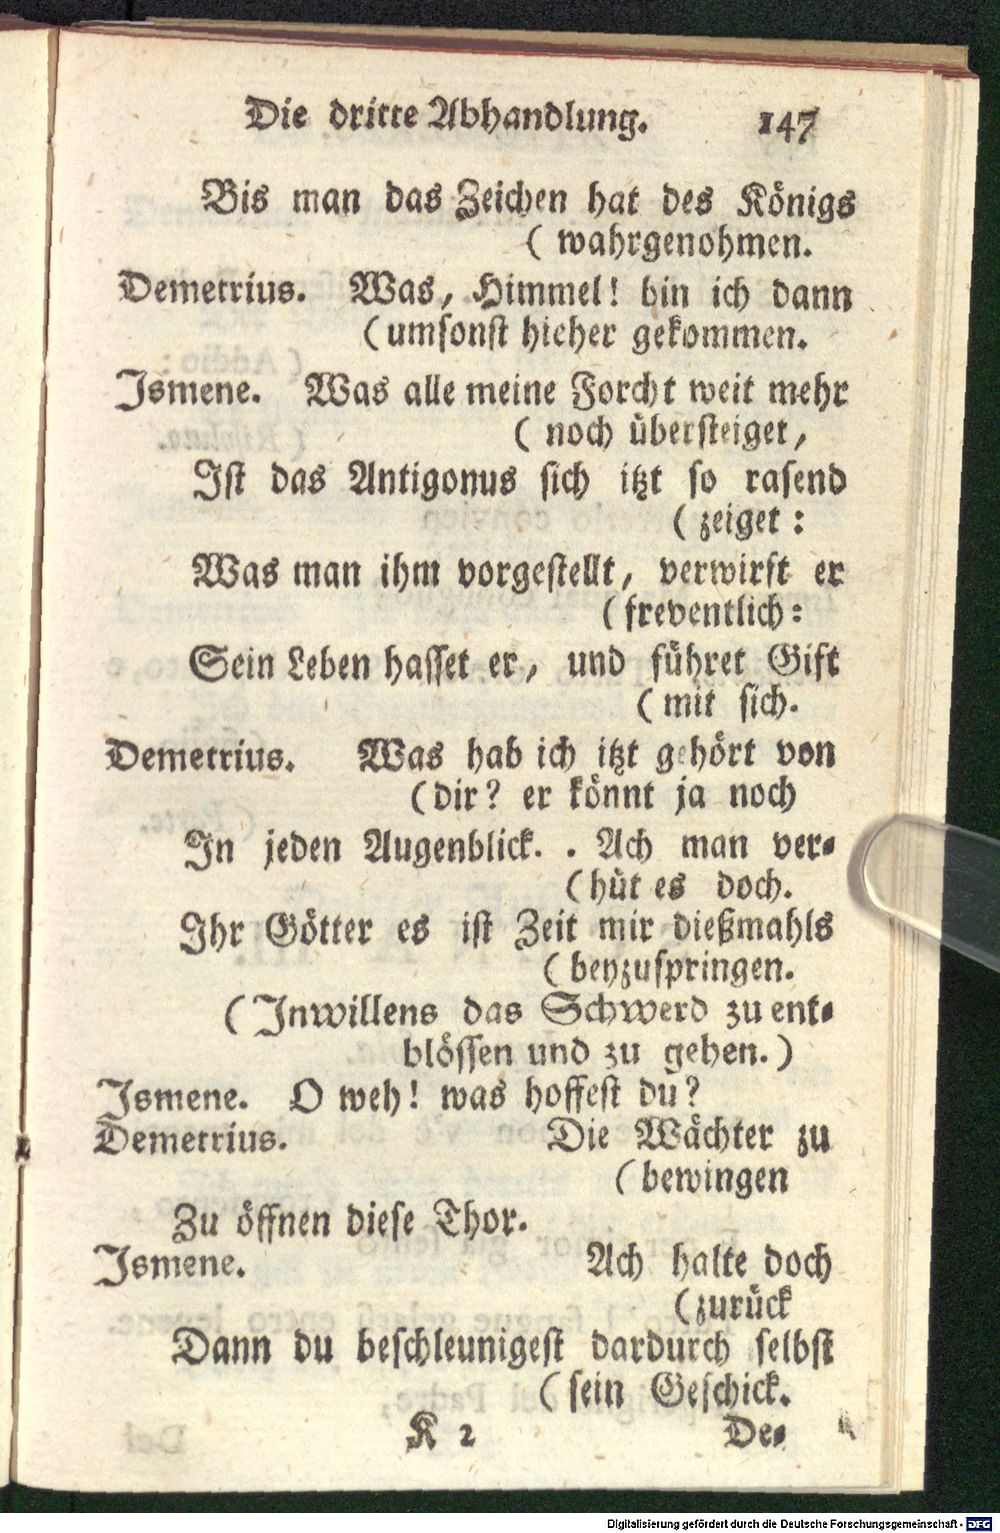 Die dritte Abhandlung. 147
Bis man das Zeichen hat des Königs
( wahrgenohmen.
Demetrius. Was, Himmel! bin ich dann
(umsonst hieher gekommen.
Ismene. Was alle meine Forcht weit mehr
( noch übersteiget,
Ist das Antigonus sich itzt so rasend
( zeiget:
Was man ihm vorgestellt, verwirft er
( freventlich:
Sein Leben hasset er, und führet Gift
( mit sich.
Demetrius. Was hab ich itzt gehört von
(dir? er könnt ja noch
In jeden Augenblick. . Ach man ver-
(hüt es doch.
Ihr Götter es ist Zeit mir dießmahls
( beyzuspringen.
(Inwillens das Schwerd zu ent-
blössen und zu gehen.)
Ismene. O weh! was hoffest du?
Demetrius. Die Wächter zu
( bewingen
Zu öffnen diese Thor.
Ismene. Ach halte doch
(zurück
Dann du beschleunigest dardurch selbst
( sein Geschick.
K 2 De-
Digitalisierung gefördert durch die Deutsche Forschungsgemeinschaft - DFG